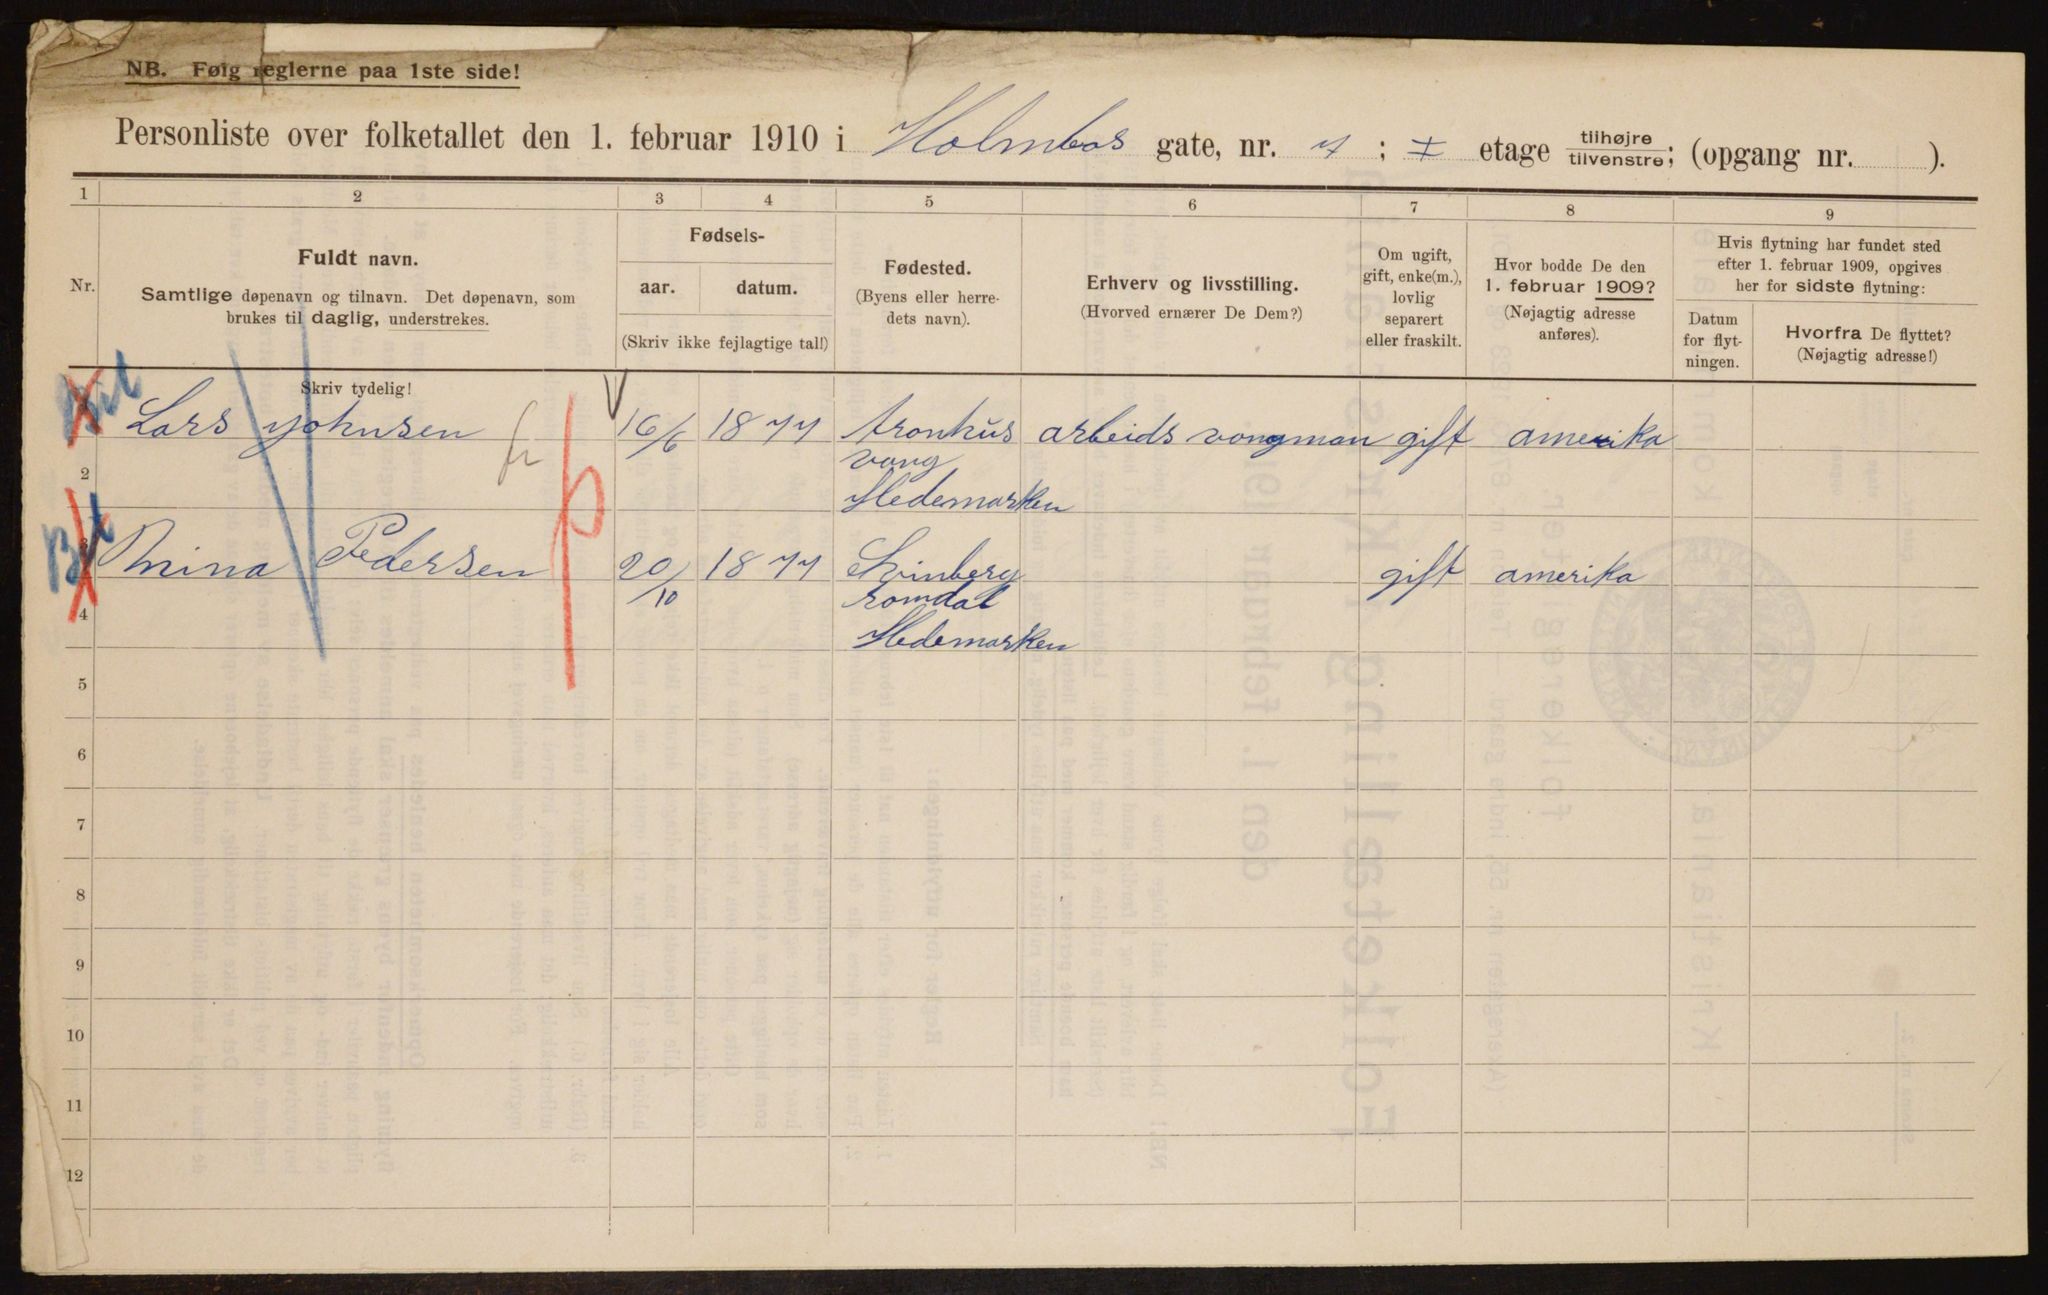 NB. Følg reglerne paa 1ste side!
Personliste over folketallet den 1. februar 1910 i Holmbos gate, nr. 7; I etage tilhøjre tilvenstre; (opgang nr. ).
1 2 3 4 5 6 7 8 9
Nr.
Fuldt navn.
Samtlige døpenavn og tilnavn. Det døpenavn, som
brukes til daglig, understrekes.
Fødsels-
aar. datum.
(Skriv ikke fejlagtige tal!)
Fødested.
(Byens eller herre-
dets navn).
Erhverv og livsstilling.
(Hvorved ernærer De Dem?)
Om ugift,
gift, enke(m.),
lovlig
separert
eller fraskilt.
Hvor bodde De den
1. februar 1909?
(Nøjagtig adresse
anføres).
Hvis flytning har fundet sted
efter 1. februar 1909, opgives
her for sidste flytning:
Datum
for flyt-
ningen.
Hvorfra De flyttet?
(Nøjagtig adresse!)
Skriv tydelig!
Lars Johnsen 16/6 1877 Aronhus arbeids vongman gift amerika
2 vang
Hedemarken
3 Mina Pedersen 20/10 1877 Svinberg gift amerika
4 romdal
Hedemarken
5
6
7
8
9
10
11
12